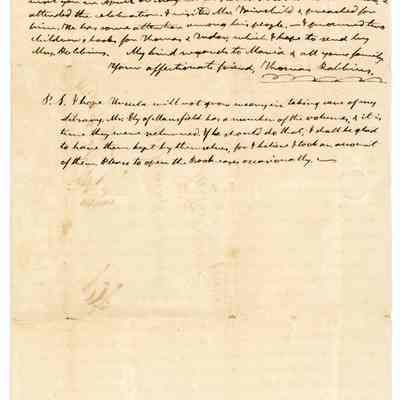 attended the celebration & visited Mr. Fairchild & preached for
him. He has some attention among his people. I procured two
children's books for Thomas & Judas, which I hope to send by
Mrs. Robbins. My kind regards to Maria & all your family.
Your affectionate friend, Thomas Robbins.
P. S. I hope Ursula will not grow weary in taking care of my
library. Mr. Ely of Mansfield has a number of the volumes, & it is
time they were returned. If he should do that, I shall be glad
to have them kept by themselves, for I believe I took an account
of them. Please to open the Book-cases occasionally.